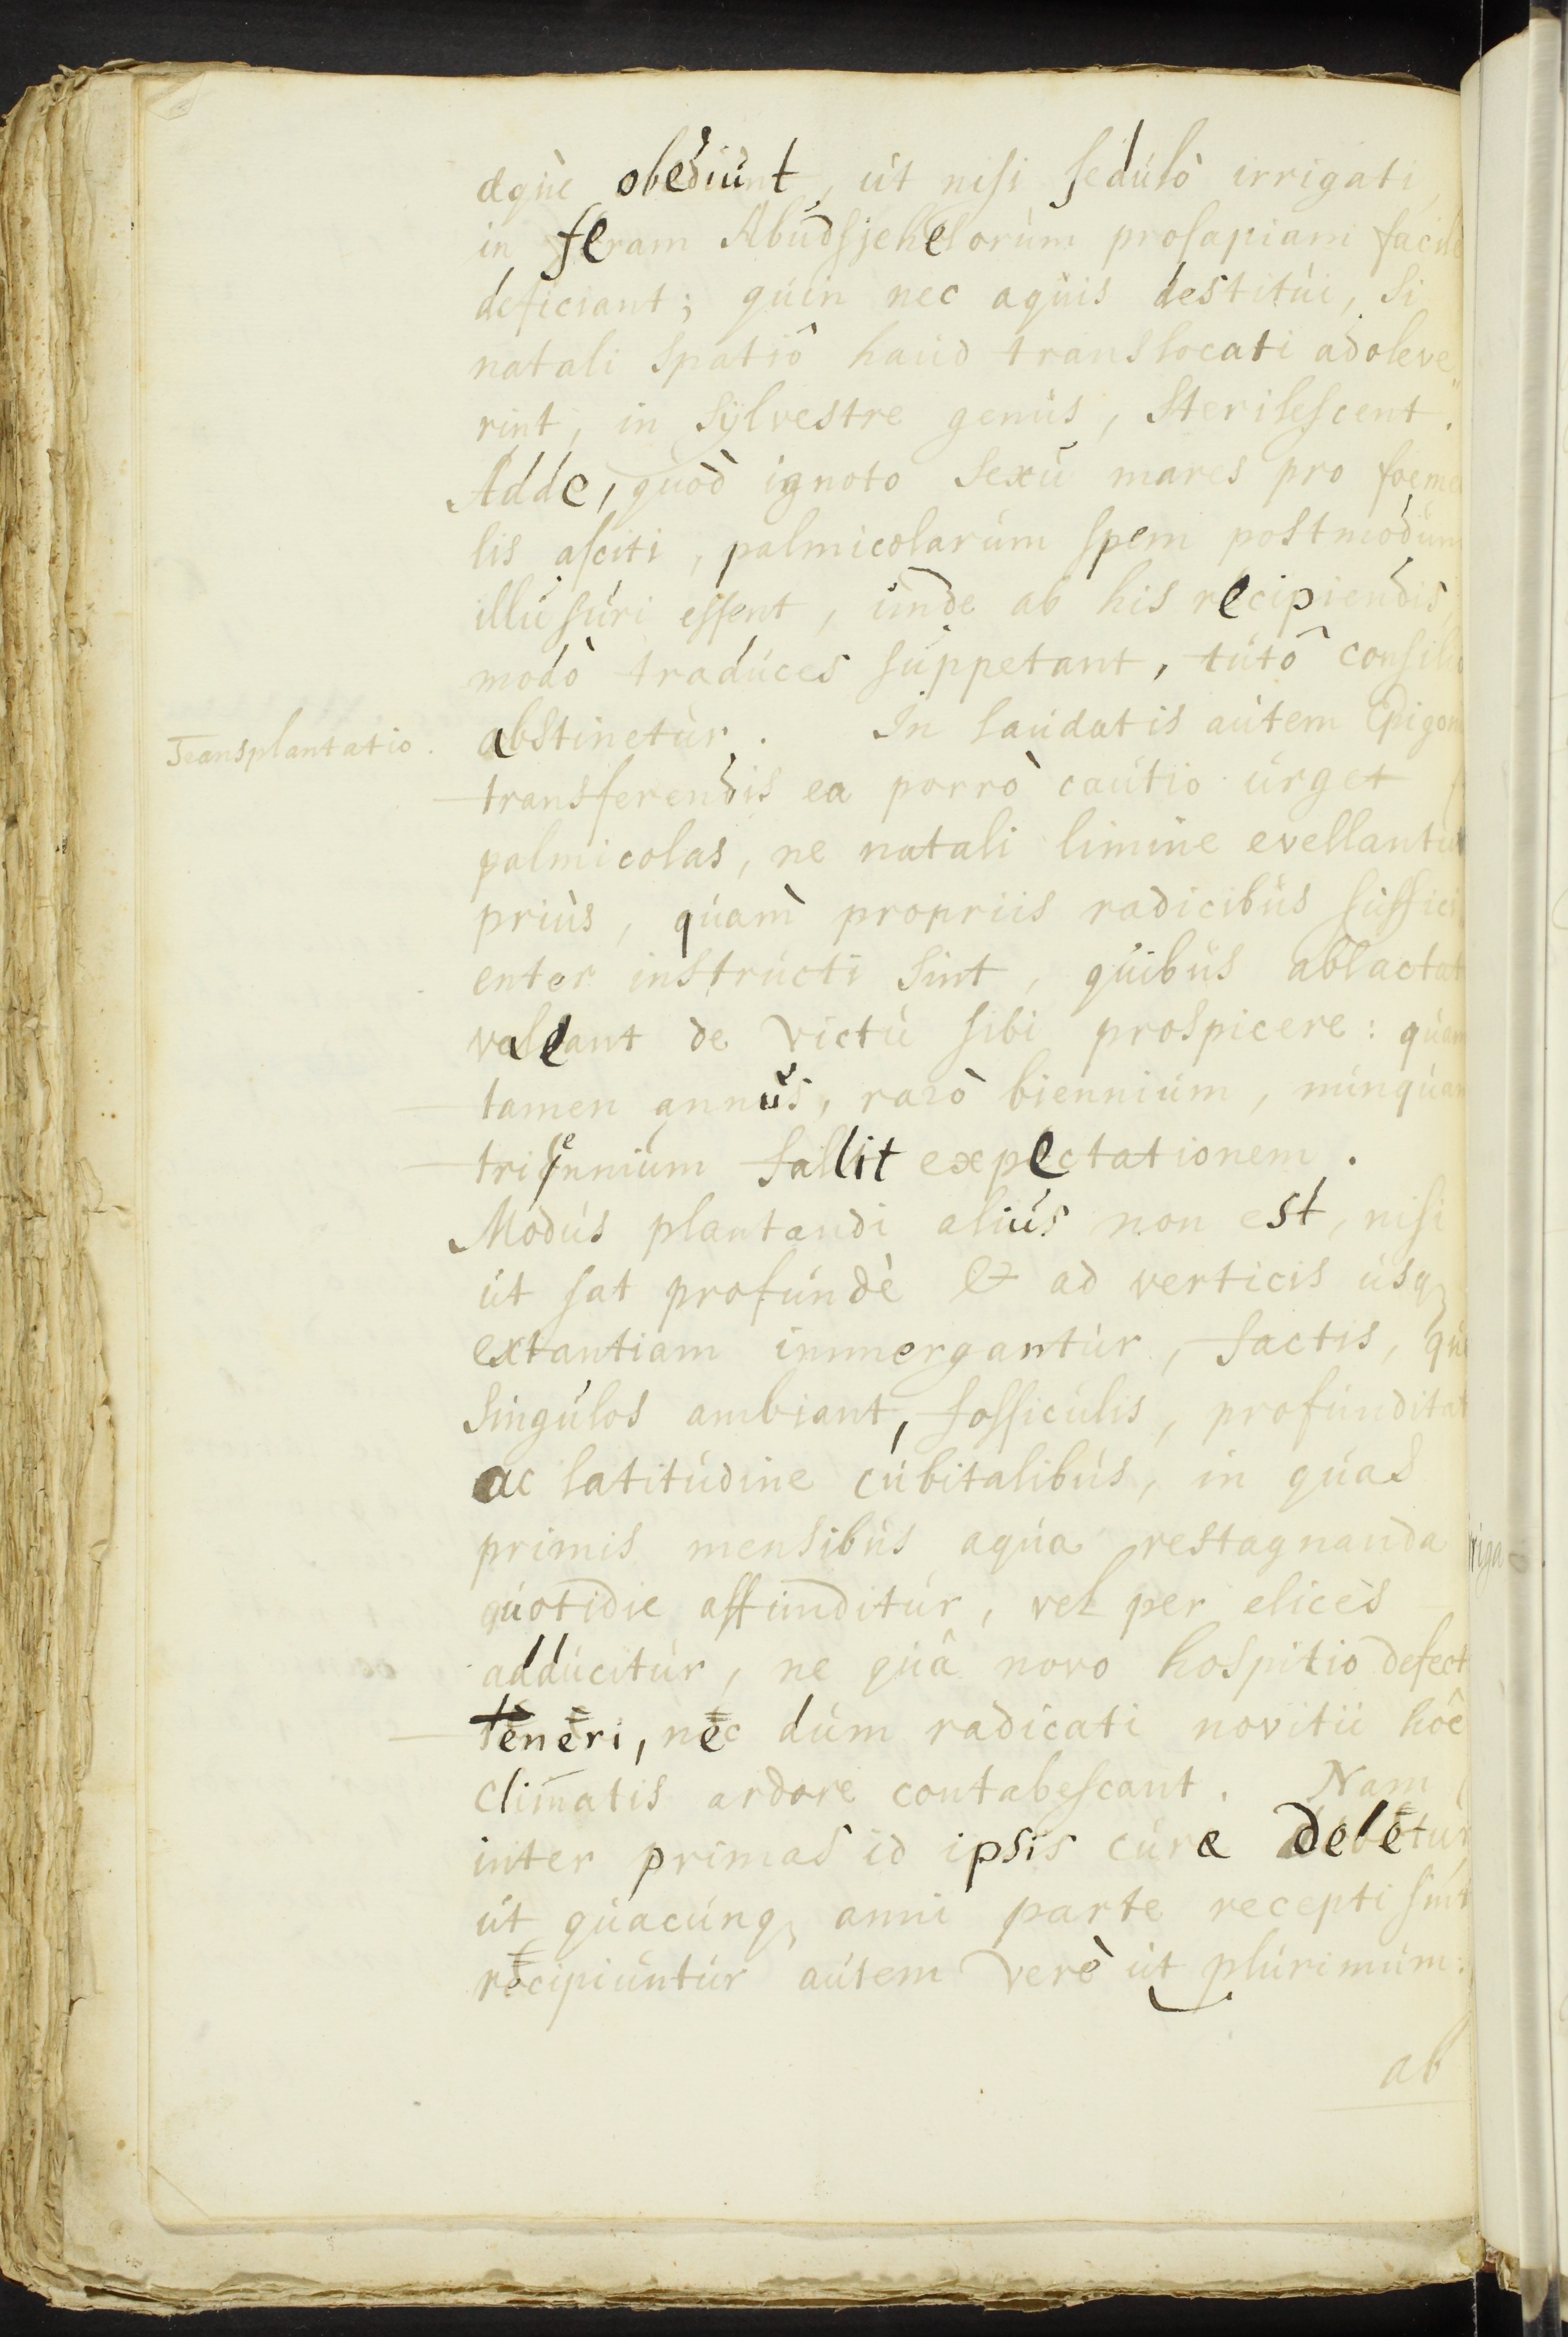 æquè obediunt, ut nisi sedulò irrigati,
in feram Abudsjehelorum prosapiam facilè
deficiant; quin nec aquis destitui, si
natali spatiô haud translocati adoleve
rint, in sÿlvestre genus, sterilescent.
Adde, quòd ignoto sexu mares pro foemel
lis asciti, palmicolarum spem postmodum
illusuri essent, unde ab his recipiendis,
modò traduces suppetant, tutô consilio
abstinetur. In laudatis autem Epigon
Transplantatio.
transferendis ea porrò cautio urget
palmicolas, ne natali limine evellantur
priùs, quàm propriis radicibus suffici
enter instructi sint, quibus ablactat
valeant de victu sibi prospicere: quam
tamen annus, rarò biennium, nunquam
triennium fallit expectationem.
Modus plantandi alius non est, nisi
ut sat profundè & ad verticis usq
extantiam immergantur, factis, qui
singulos ambiant, fossiculis, profunditat
ac latitudine cubitalibus, in quas
primis mensibus aqua restagnanda
quotidie affunditur, vel per elices
adducitur, ne quâ novo hospitio defect
teneri, nec dum radicati novitii hôc
clim̄atis ardore contabescant. Nam
inter primas id ipsis curæ debetur
ut quacunq anni parte recepti sint
recipiuntur autem verò ut plurimum:
ab